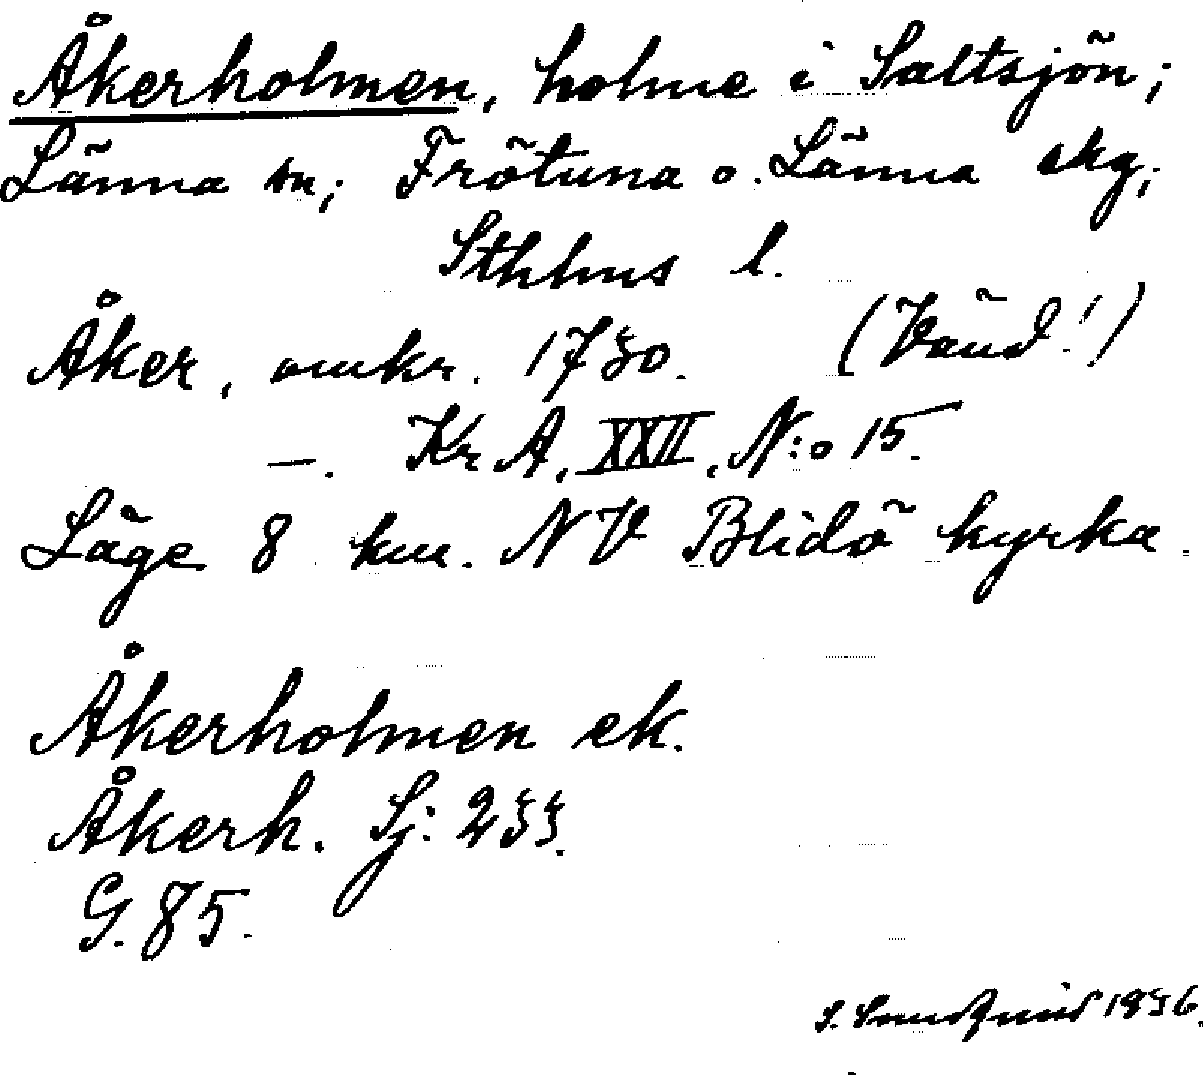 Åkerholmen, holme i Saltsjön;
Länna sn; Frötuna o. Länna skg;
Sthlms l.
Åker, omkr. 1730. (Vänd!)
—. Kr A, XXII, N:o 15.
Läge 8 km. NV Blidö kyrka.
Åkerholmen ek.
Åkerh. Sj: 233.
G. 85.
1936.